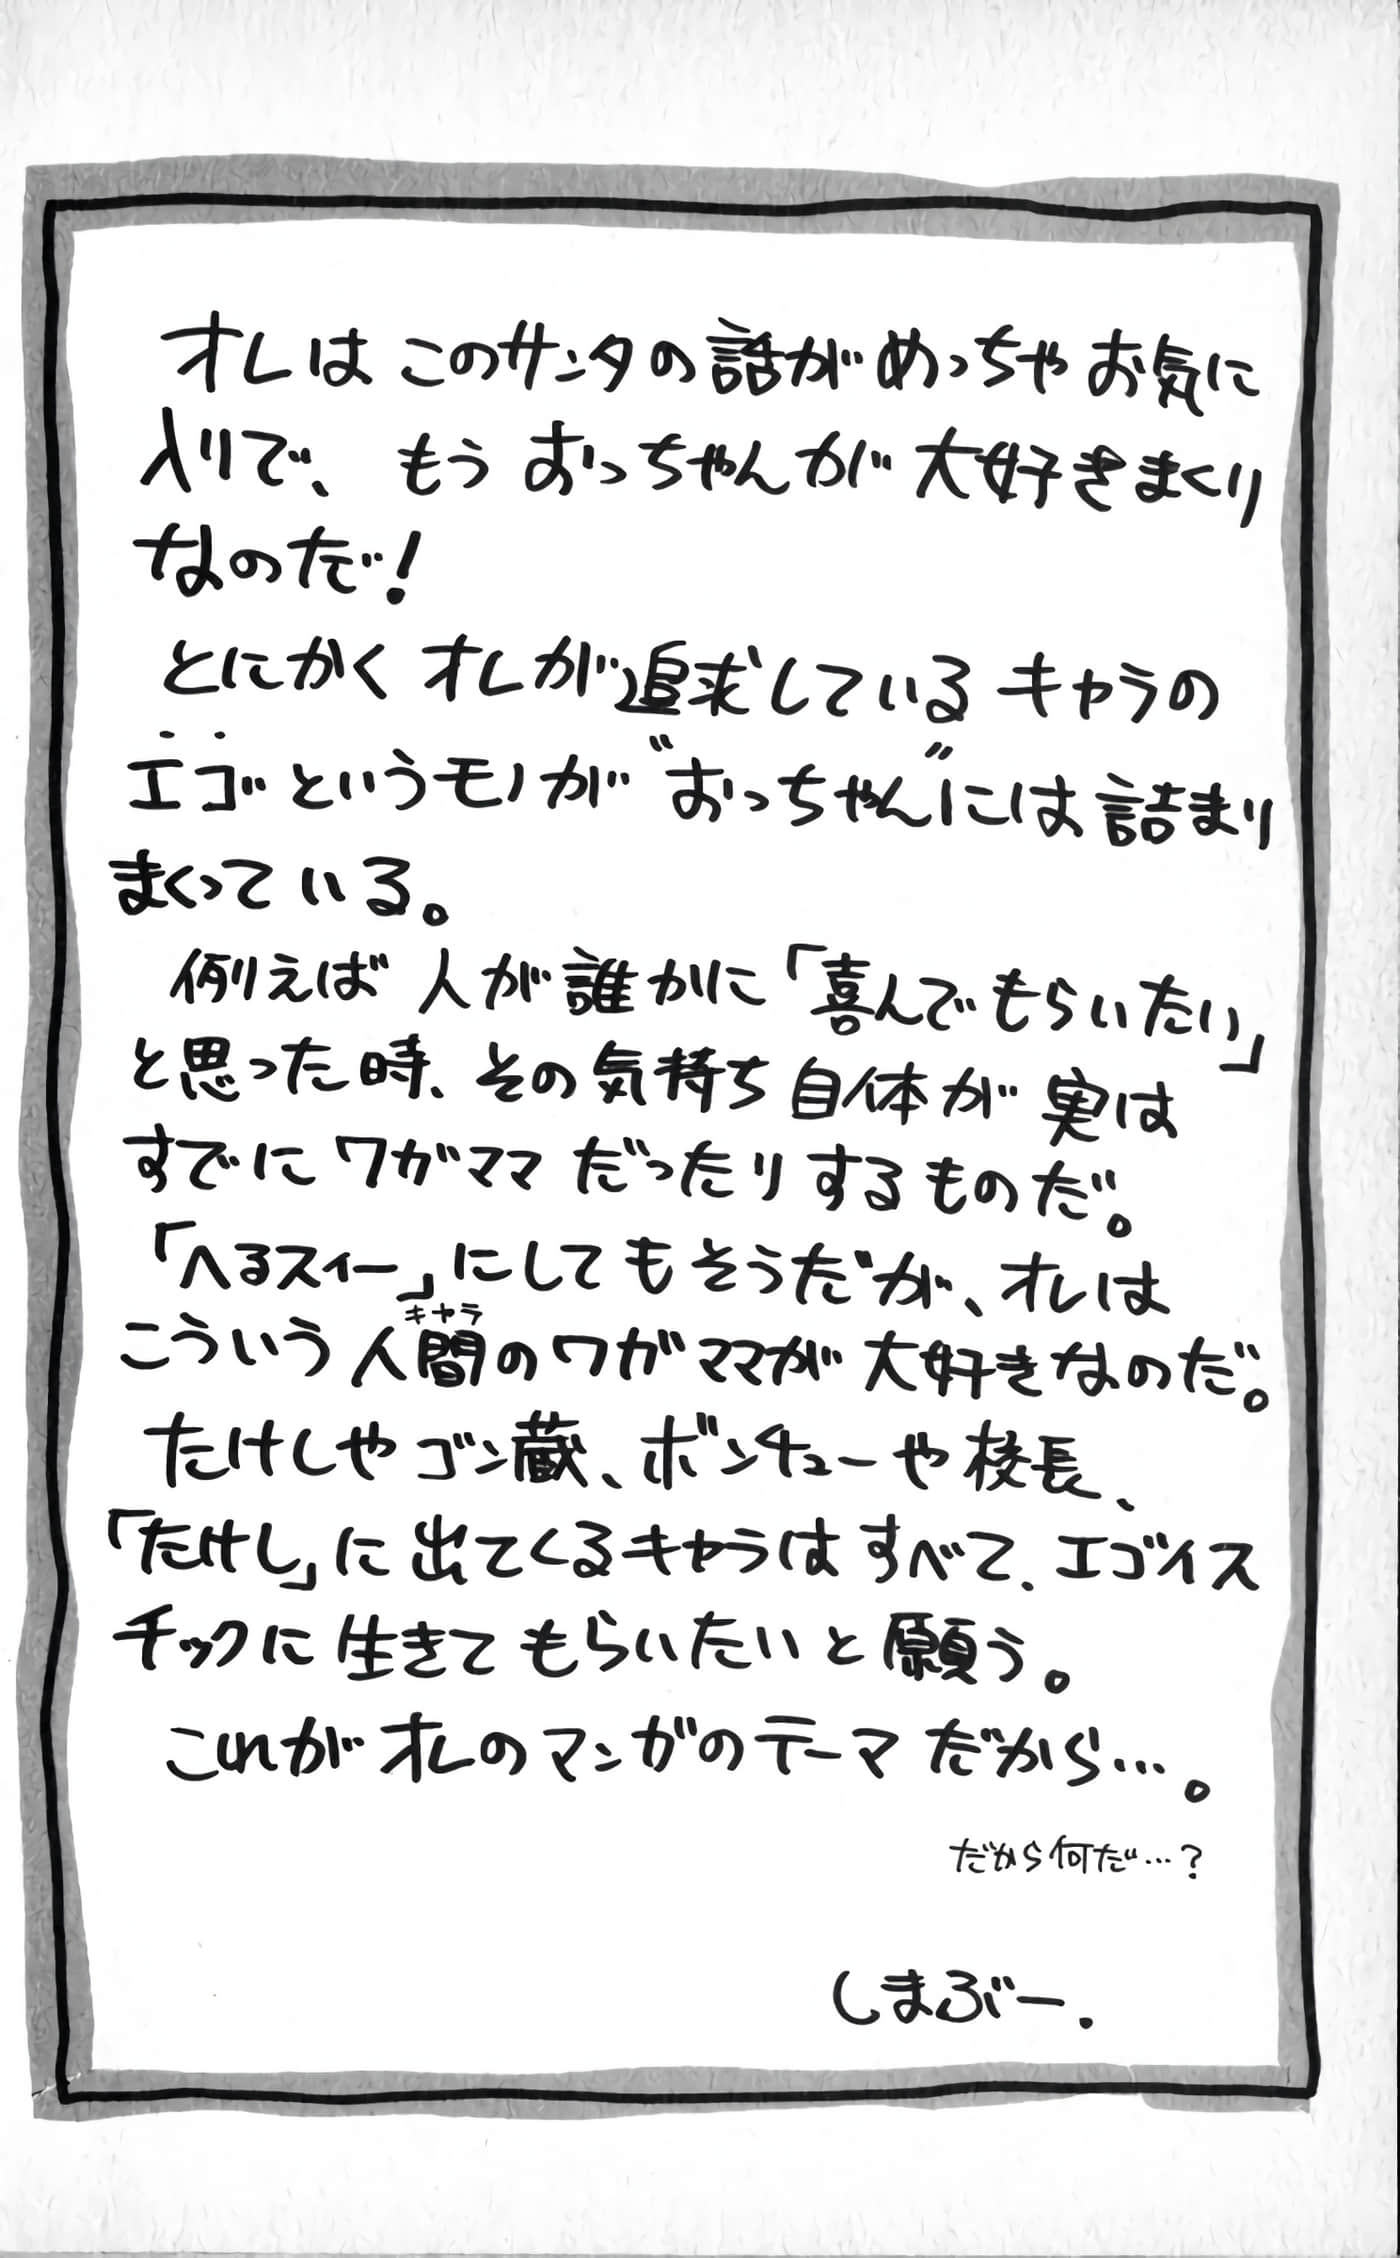 オレは このサンタの話がめっちゃ お気に
入りで、 もう おっちゃんが 大好きまくり
なのだ!
とにかく オレが追求している キャラの
エゴ というモノが “おっちゃん”には 詰まり
まくっている。
例えば 人が誰かに「喜んでもらいたい」
と思った時、その気持ち自体が 実は
すでに ワガママだったりするものだ。
「へるスィー」にしてもそうだが、オレは
こういう人間(キャラ)のワガママが大好きなのだ。
たけしやゴン蔵、ボンチューや校長、
「たけし」に出てくるキャラはすべて、エゴイス
チックに生きてもらいたいと願う。
これがオレのマンガのテーマだから…。
だから何だ…?
しまぶー.